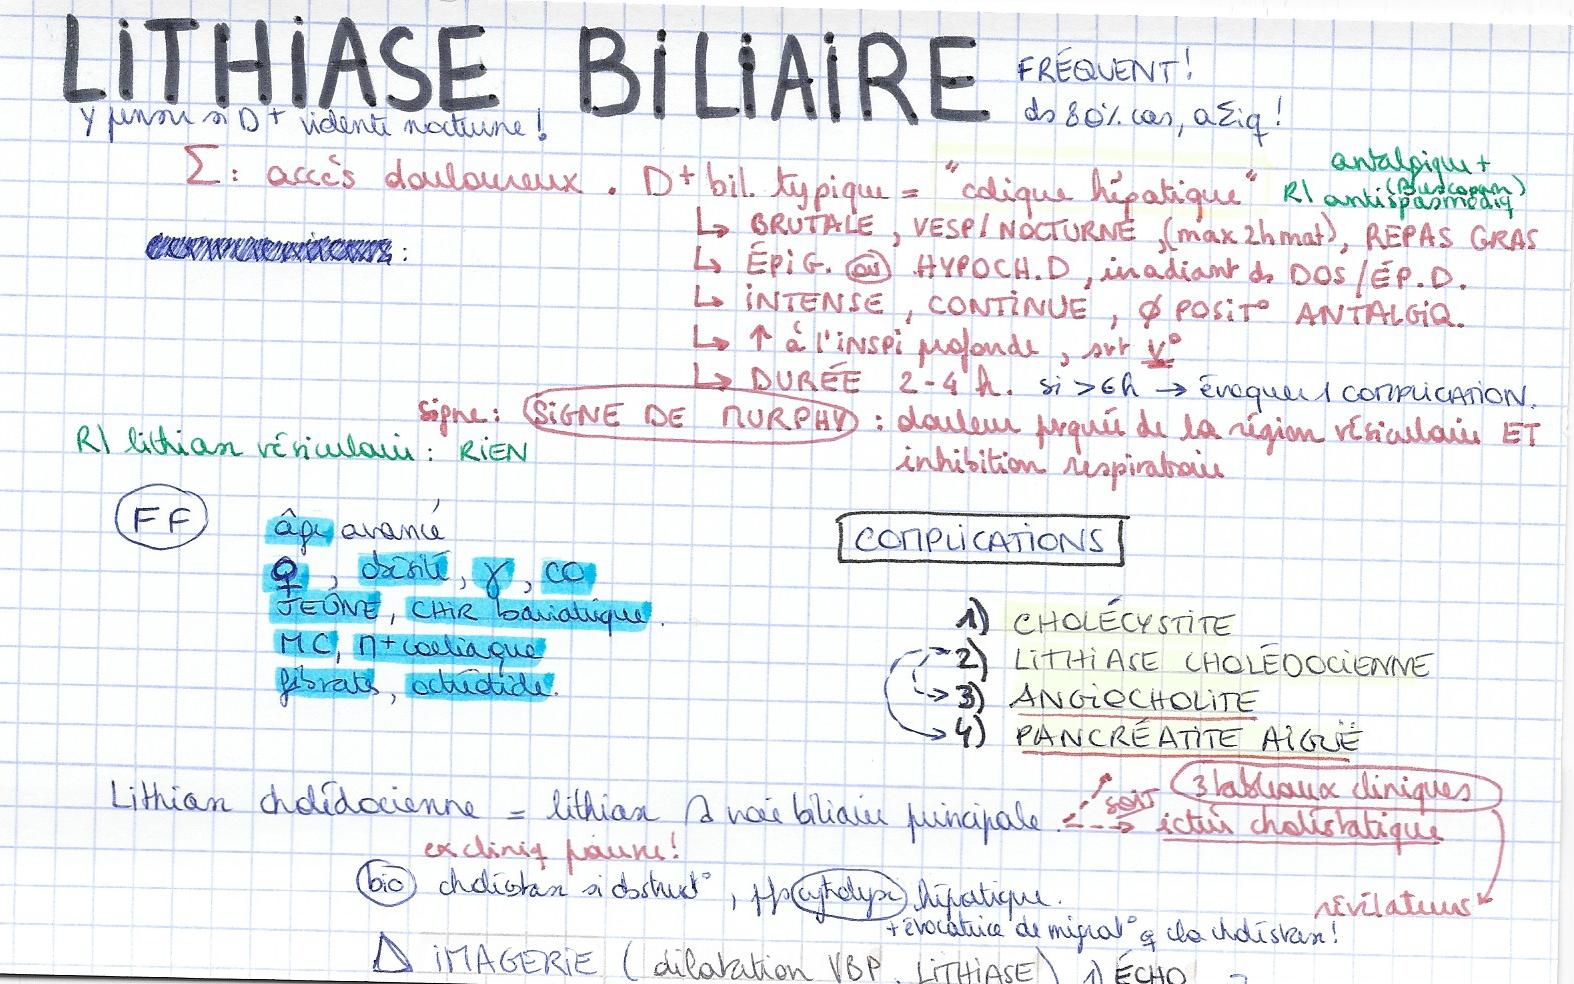 LiTHiASE BiLiAiRE
FRÉQUENT!
ds 80% cas, aΣiq!
y penser si D+ violente nocturne!
Σ: accès douloureux. D+ bil. typique = "colique hépatique"
antalgique +
(Buscopan)
R/ antispasmodiq
↳ BRUTALE, VESP/NOCTURNE, (max 2h mat), REPAS GRAS
↳ ÉPiG. ou HYPOCH.D, irradiant ds DOS/ÉP.D.
↳ iNTENSE, CONTiNUE, Ø POSiT° ANTALGiQ.
↳ ↑ à l'iNSPi profonde, srt V°
↳ DURÉE 2-4 h. si >6h → évoquer 1 COMPLiCATiON.
signe: SiGNE DE MURPHY : douleur pquée de la région vésiculaire ET
inhibition respiratoire
R/ lithiase vésiculaire : RiEN
FF
âge avancé
♀, obésité, γ, CO
JEÛNE, CHiR bariatrique.
MC, M+ coeliaque
fibrates, octréotide.
COMPLiCATiONS
1) CHOLÉCYSTiTE
2) LiTHiASE CHOLÉDOCiENNE
3) ANGiOCHOLiTE
4) PANCRÉATiTE AiGUË
3 tableaux cliniques
Lithiase cholédocienne = lithiase voie biliaire principale. soit → ictère cholestatique
ex cliniq pauvre!
bio cholestase si obstruct°, cytolyse hépatique.
révélateurs
+ évocatrice de migrat° q la cholestase!
iMAGERiE (dilatation VBP, LiTHiASE) 1) ÉCHO